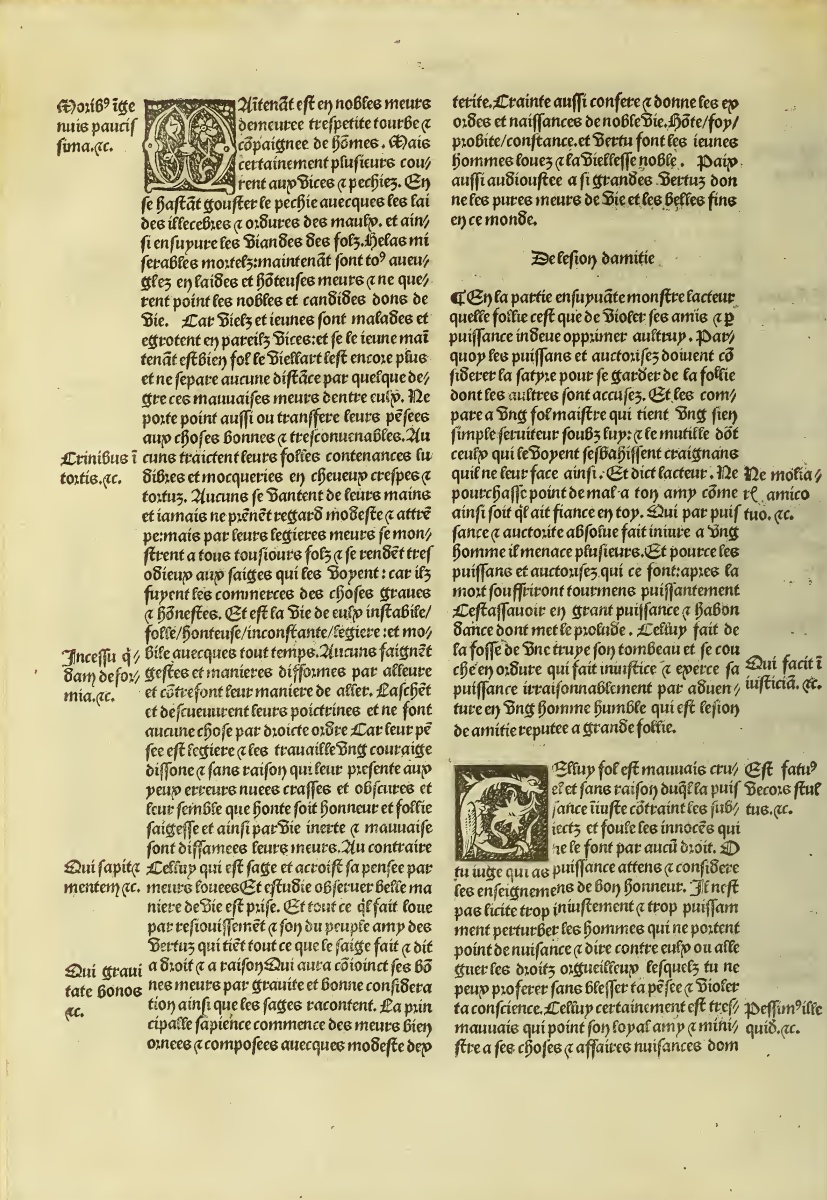 Moribꝰ īge
nuis paucis
sima.⁊c.
MAĩtenãt est en nobles meurs
demeuree trespetite tourbe ⁊
cõpaignee de hõmes. Mais
certainement plusieurs cou/
rent aux vices ⁊ pechiez. En
se hastãt gouster le pechie auecques les lai
des illecebres ⁊ ordures des maulx. et ain/
si ensupure les viandes des folz. Helas mi
serables mortelz: maintenãt sont toꝰ aueu/
glez en laides et hõteuses meurs ⁊ ne que/
rent point les nobles et candides dons de
vie. Car vielz et ieunes sont malades et
egrotent en pareilz vices: et se le ieune maĩ
tenãt est bien fol le viellart lest encore plus
et ne separe aucune distãce par quelque de/
gre ces mauuaises meurs dentre eulx. Ne
porte point aussi ou transfere leurs pẽsees
aux choses bonnes ⁊ tresconuenables. Au
Crinibus ĩ
tortis.⁊c.
cuns traictent leurs folles contenances lu
dibres et mocqueries en cheueux crespes ⁊
tortuz. Aucuns se vantent de leurs mains
et iamais ne prẽnẽt regard modeste ⁊ attrẽ
pe: mais par leurs legieres meurs se mon/
strent a tous tousiours folz ⁊ se rendẽt tres
odieux aux saiges qui les voyent: car ilz
fuyent les commerces des choses graues
⁊ hõnestes. Et est la vie de eulx instabile/
folle/honteuse/inconstante/legiere: et mo/
Jncessu q̃/
dam defor/
mia.⁊c.
bile auecques tout temps. Aucuns faignẽt
gestes et manieres difformes par alleure
et cõtrefont leur maniere de aller. Laschẽt
et descueuurent leurs poictrines et ne font
aucune chose par droicte ordre Car leur pẽ
see est legiere ⁊ les trauaille vng couraige
dissone ⁊ sans raison qui leur presente aux
yeux erreurs nuees crasses et obscures et
leur semble que honte soit honneur et follie
saigesse et ainsi par vie inerte ⁊ mauuaise
sont diffamees leurs meurs. Au contraire
Qui sapit ⁊
mentem ⁊c.
Celluy qui est sage et acroist sa pensee par
meurs louees Et estudie obseruer belle ma
niere de vie est prise. Et tout ce q̃l fait loue
par resiouissemẽt ⁊ son du peuple amy des
vertuz qui tiẽt tout ce que le saige fait ⁊ dit
Qui graui
tate bonos
⁊c.
a droit ⁊ a raison Qui aura cõioinct ses bõ
nes meurs par grauite et bonne considera
tion ainsi que les sages racontent. La prin
cipalle sapience commence des meurs bien
ornees ⁊ composees auecques modeste dex
terite. Crainte aussi confere ⁊ donne les ex
ordes et naissances de noble vie. Hõte/foy/
probite/constance. et vertu font les ieunes
hommes louez ⁊ la viellesse noble. Paix
aussi audioustee a si grandes vertuz don
ne les pures meurs de vie et les belles fins
en ce monde.
De lesion damitie
¶ En la partie ensuyuãte monstre lacteur
quelle follie cest que de violer ses amis ⁊ ꝑ
puissance indeue opprimer aultruy. Par/
quoy les puissans et auctorisez doiuent cõ
siderer la satyre pour se garder de la follie
dont les aultres sont accusez. Et les com/
pare a vng fol maistre qui tient vng sien
simple seruiteur soubz luy: ⁊ le mutille dõt
ceulx qui le voyent sesbahissent craignans
quil ne leur face ainsi. Et dict lacteur. Ne
Ne molia/
rẽ amico
tuo. ⁊c.
pourchasse point de mal a ton amy cõme
ainsi soit q̃l ait fiance en toy. Qui par puis
sance ⁊ auctorite absolue fait iniure a vng
homme il menace plusieurs. Et pource les
puissans et auctorisez qui ce font: apres la
mort souffriront tourmens puissantement
Cestassauoir en grant puissance ⁊ habon
dance dont met le prolude. Celluy fait de
la fosse de vne truye son tombeau et se cou
Qui facit ĩ
iusticiã. ⁊c.
che en ordure qui fait iniustice ⁊ exerce sa
puissance irraisonnablement par aduen/
ture en vng homme humble qui est lesion
de amitie reputee a grande follie.
CElluy fol est mauuais cru/
Est fatuꝰ
decors stul
tus.⁊c.
el et sans raison duq̃l la puis
sance ĩiuste cõtraint les sub/
iectz et foule les innocẽs qui
ne le font par aucũ droit. O
tu iuge qui as puissance attens ⁊ considere
les enseignemens de bon honneur. Jl nest
pas licite trop iniustement ⁊ trop puissam
ment perturber les hommes qui ne portent
point de nuisance ⁊ dire contre eulx ou alle
guer les droitz orgueilleux lesquelz tu ne
peux proferer sans blesser ta pẽsee ⁊ violer
ta conscience. Celluy certainement est tres/
Pessimꝰ ille
quid.⁊c.
mauuais qui point son loyal amy ⁊ mini/
stre a ses choses ⁊ affaires nuisances dom